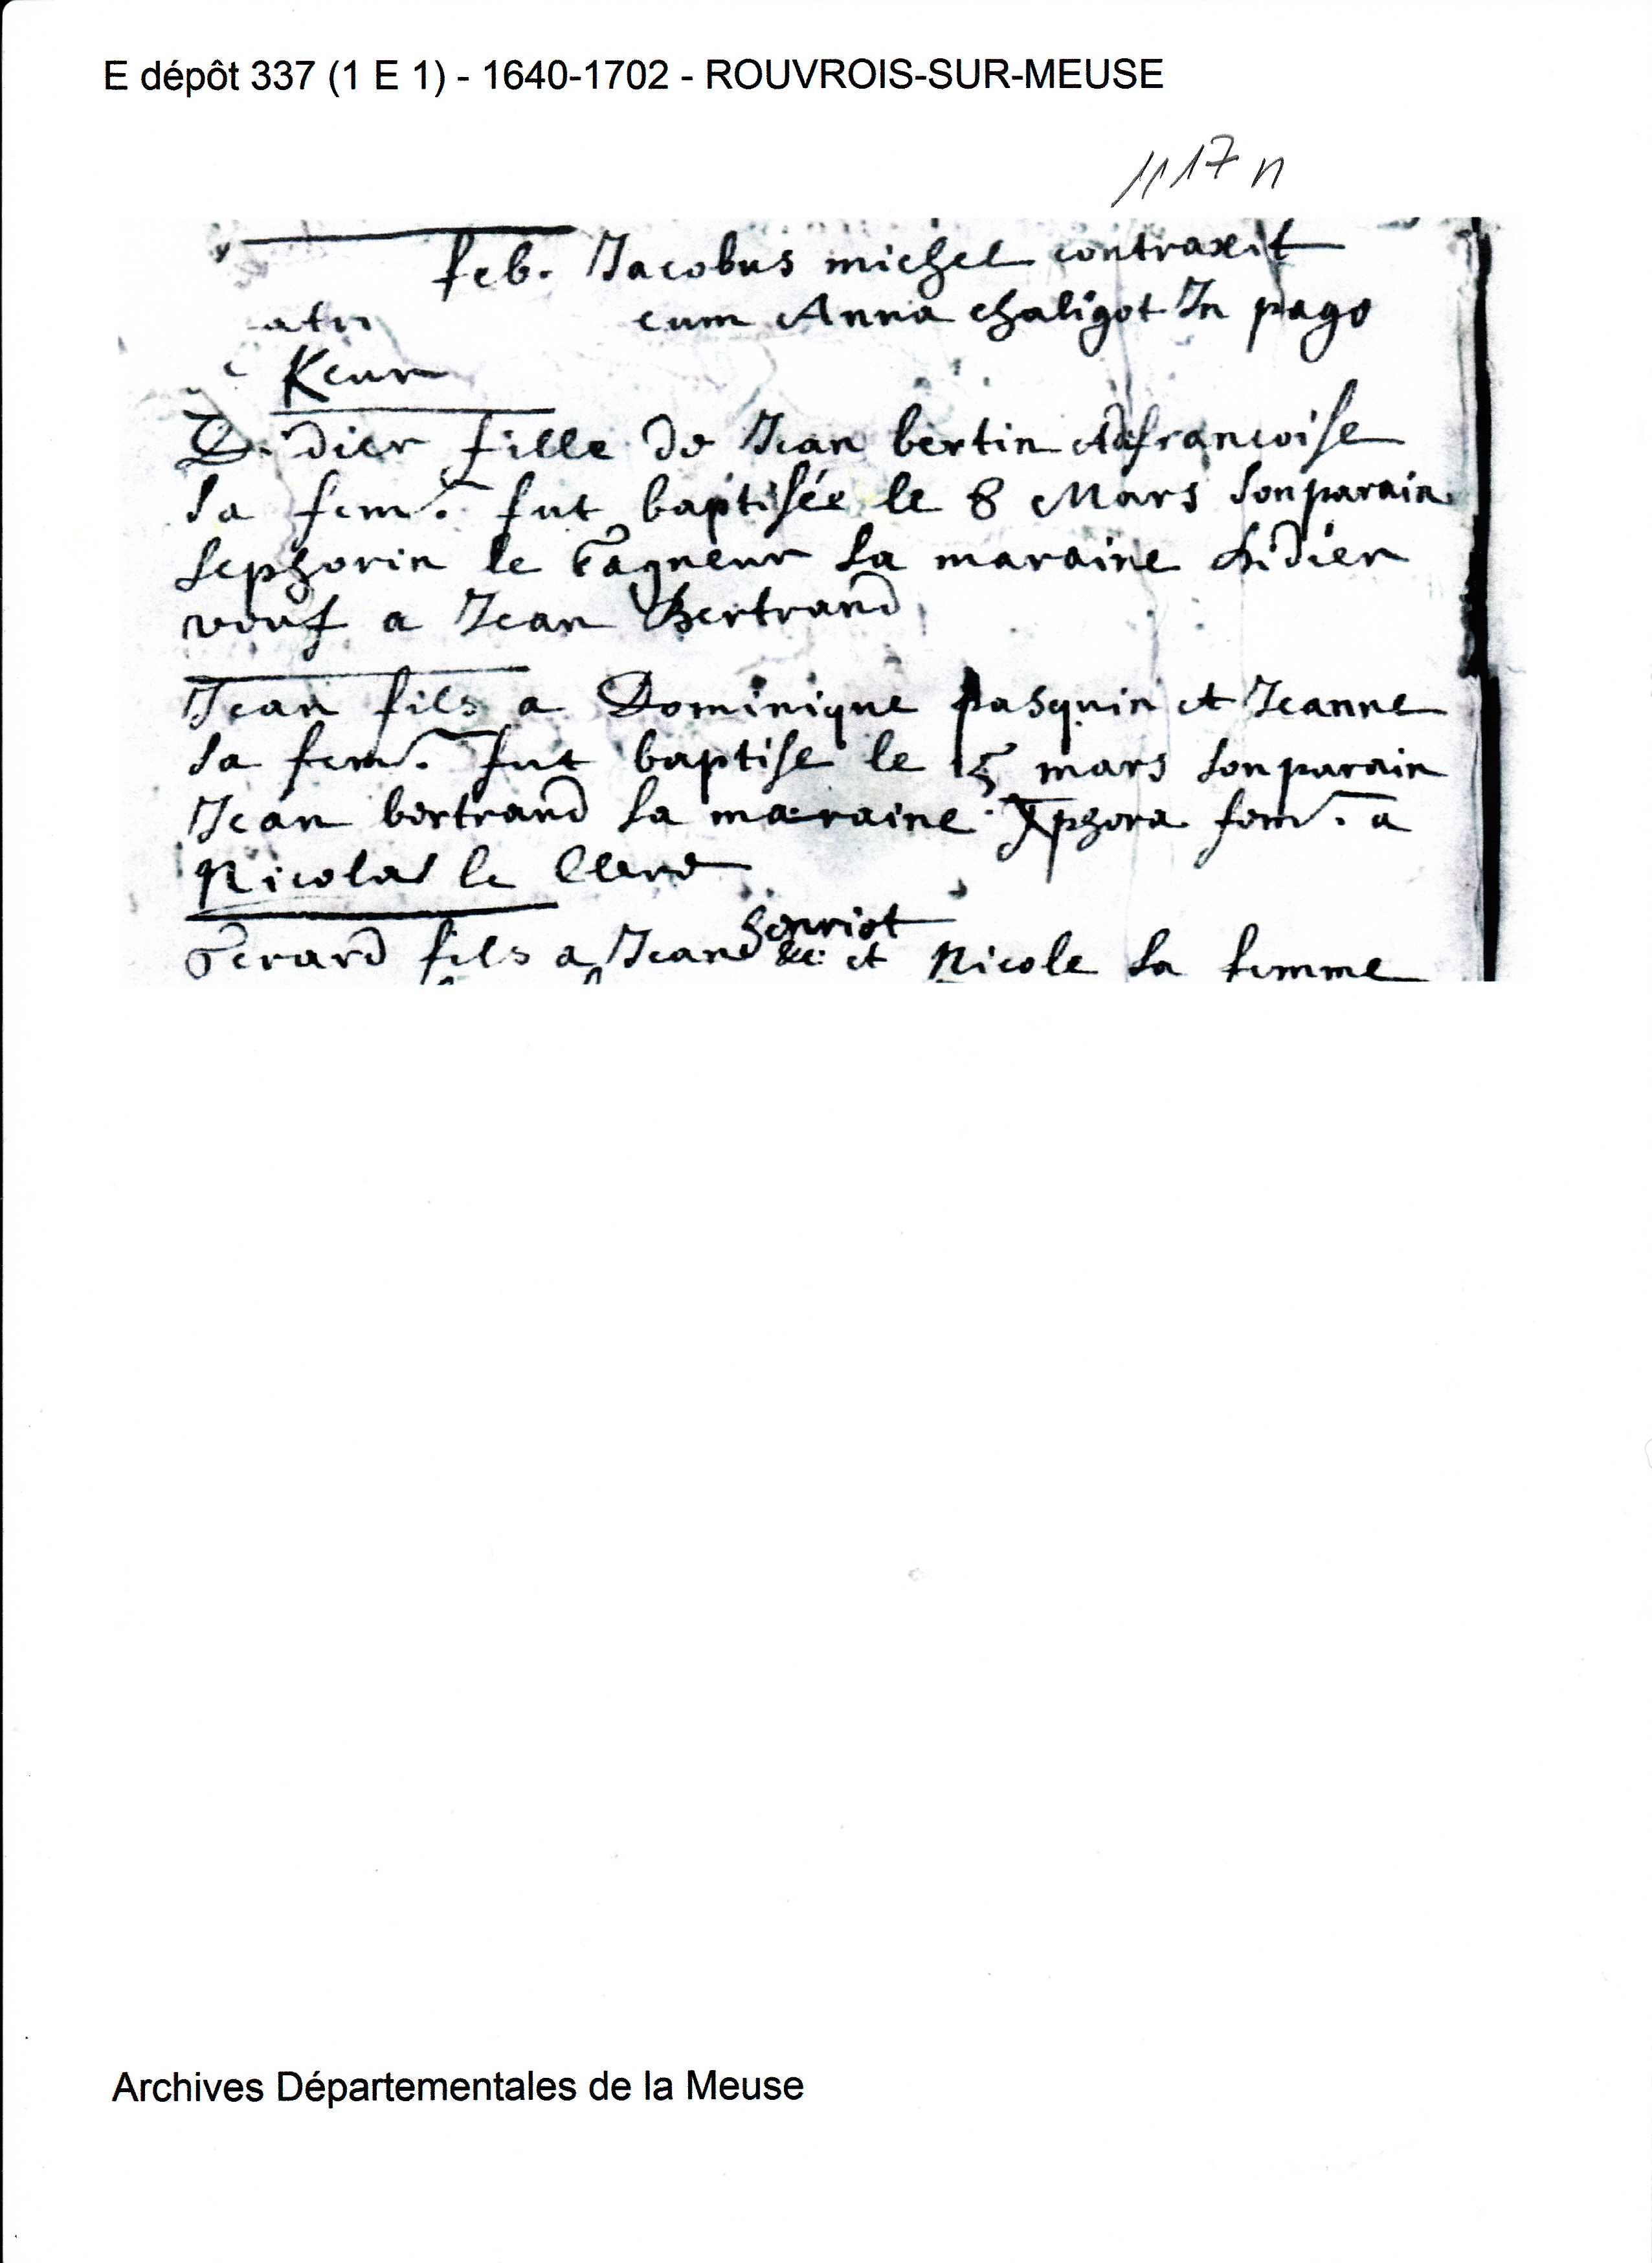 E dépôt 337 (1 E 1) - 1640-1702 - ROUVROIS-SUR-MEUSE
1117 n
feb. Jacobus michel contraxit
cum Anna chaligot In pago
Keur
Didier fille de Jean bertin françoise
sa fem. fut baptisée le 8 Mars son parain
sephorin le la maraine didier
veuf a Jean Bertrand
Jean fils a Dominique pasquin et Jeanne
sa fem. fut baptise le 15 mars son parain
Jean bertrand la maraine fem. a
Nicolas le Clerc
henriot
Gerard fils a Jean et Nicole sa femme
Archives Départementales de la Meuse